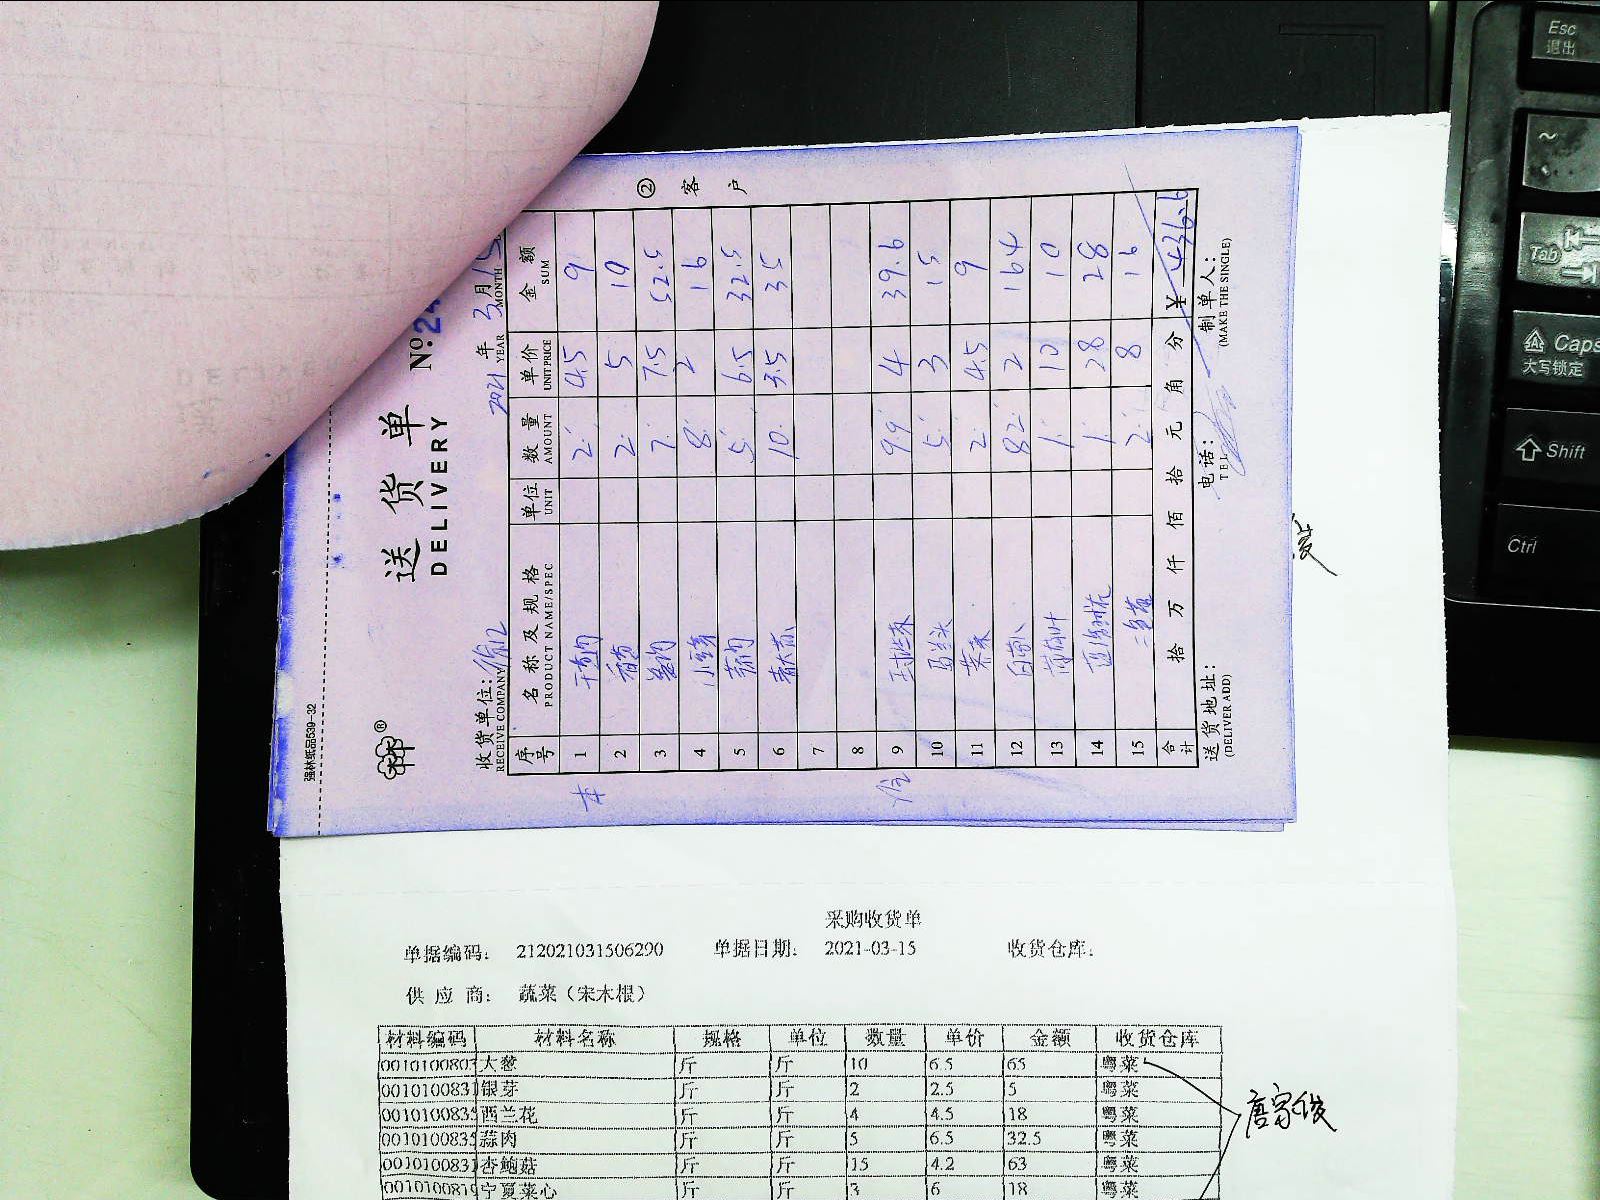 ② 客户
送货单
DELIVERY
№: 24
收货单位:
RECEIVE COMPANY
2021 年 3月 15
YEAR MONTH
序号 名称及规格 单位 数量 单价 金额
PRODUCT NAME/SPEC UNIT AMOUNT UNIT PRICE SUM
1 2 4.5 9
2 2 5 10
3 姜肉 7 7.5 52.5
4 8 2 16
5 蒜肉 5 6.5 32.5
6 10 3.5 35
7
8
9 9.9 4 39.6
10 马兰头 5 3 15
11 2 4.5 9
12 白萝卜 82 2 164
13 1 10 10
14 1 28 28
15 2 8 16
合计 拾 万 仟 佰 拾 元 角 分 ¥ 436.6
送货地址: 电话: 制单人:
(DELIVER ADD) TEL (MAKE THE SINGLE)
强林纸品539-32
采购收货单
单据编码: 212021031506290 单据日期: 2021-03-15 收货仓库:
供应商: 蔬菜(宋木根)
材料编码 材料名称 规格 单位 数量 单价 金额 收货仓库
0010100803 大葱 斤 斤 10 6.5 65 粤菜
0010100831 银芽 斤 斤 2 2.5 5 粤菜
0010100835 西兰花 斤 斤 4 4.5 18 粤菜
0010100835 蒜肉 斤 斤 5 6.5 32.5 粤菜
0010100831 杏鲍菇 斤 斤 15 4.2 63 粤菜
0010100819 宁夏菜心 斤 斤 3 6 18 粤菜
唐家俊
Esc
退出
~
Tab
Caps
大写锁定
Shift
Ctrl